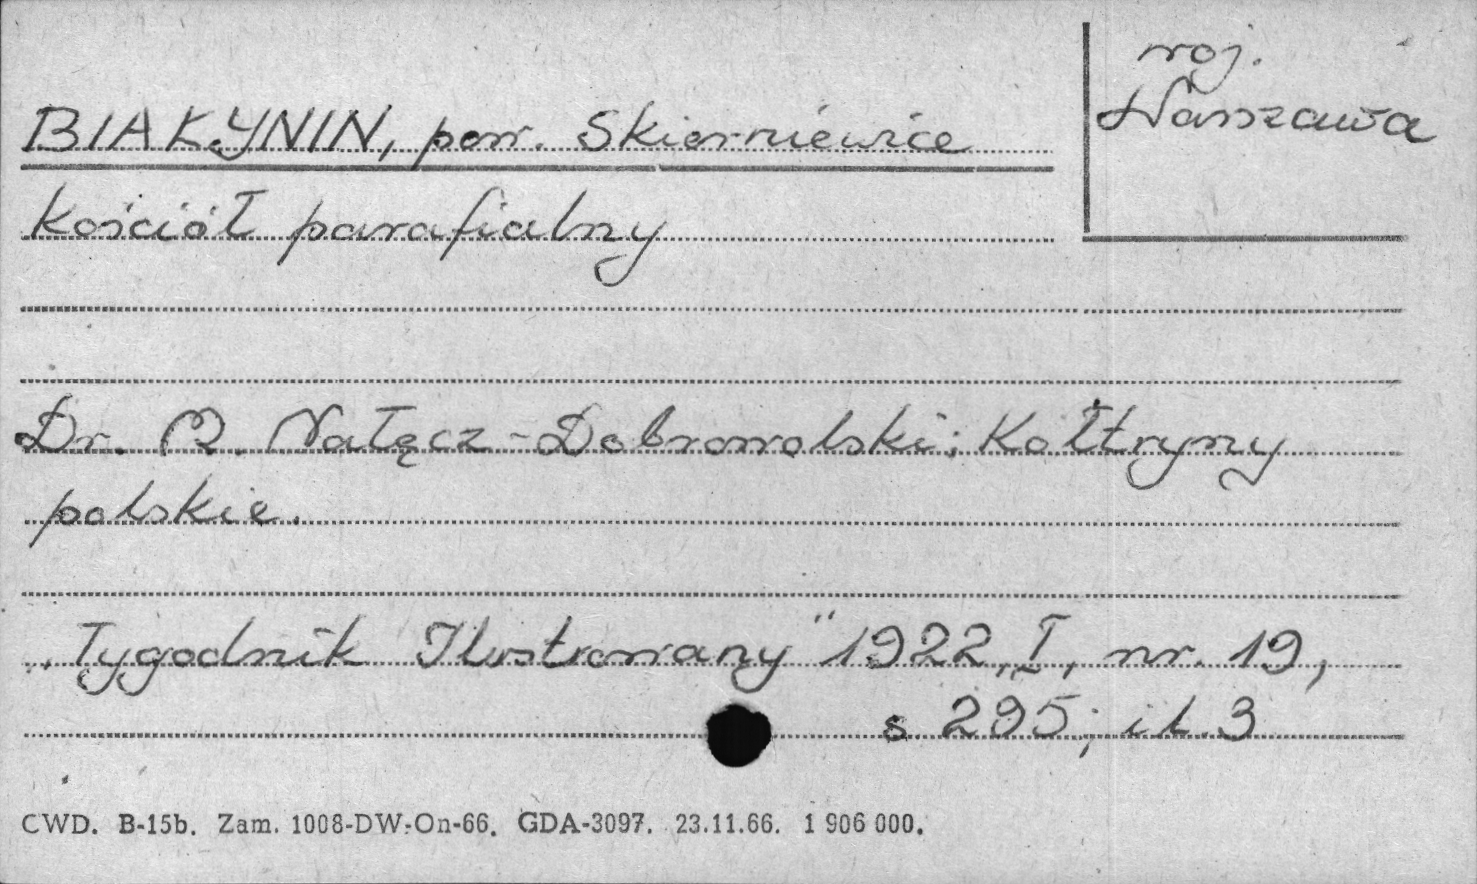 woj.
Warszawa
BIAŁYNIN, pow. Skierniewice
Kościół parafialny
Dr. M. Nałęcz-Dobrowolski; Kołtryny
polskie.
„Tygodnik Ilustrowany" 1922, I, nr. 19,
s 295; il. 3
CWD. B-15b. Zam. 1008-DW-On-66. GDA-3097. 23.11.66. 1 906 000.